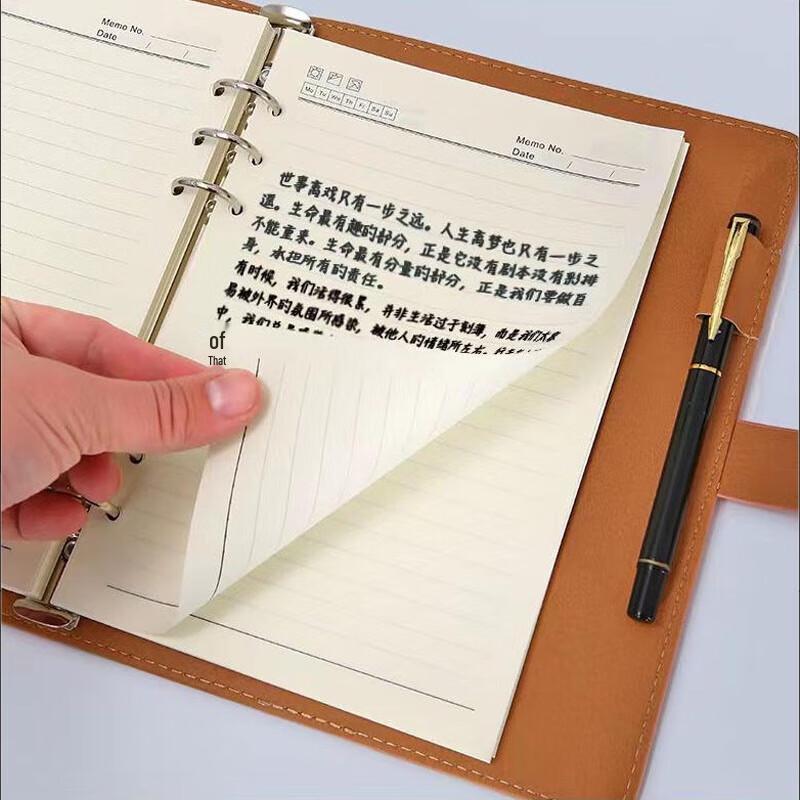 Memo No.
Date / /
Mo Tu We Th Fr Sa Su
Memo No.
Date / /
世事离戏只有一步之远。人生离梦也只有一步之
遥。生命最有趣的部分，正是它没有剧本没有彩排
不能重来。生命最有分量的部分，正是我们要做自
身，承担所有的责任。
有时候，我们活得很累，并非生活过于刻薄，而是我们太容
易被外界的氛围所感染，被他人的情绪所左右。
中，我们总是
of
That